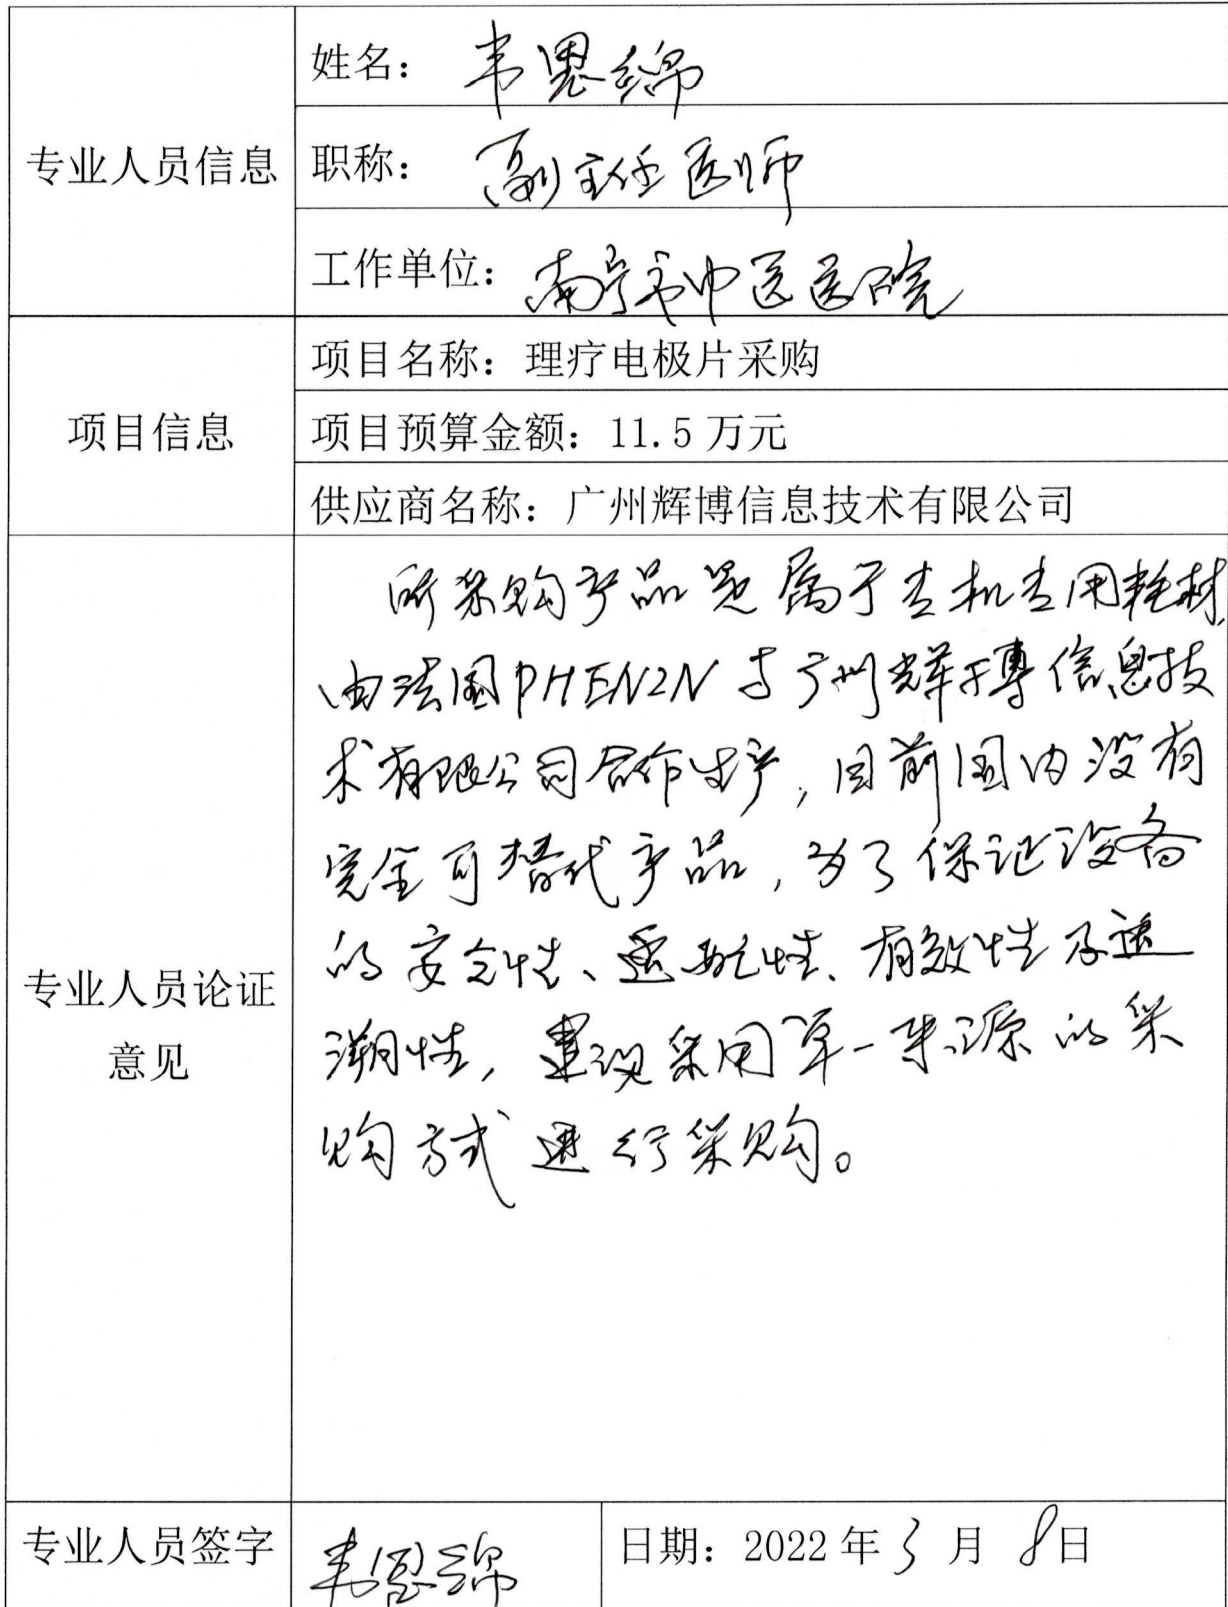 专业人员信息
姓名：韦恩绵
职称：副主任医师
工作单位：南宁市中医医院
项目信息
项目名称：理疗电极片采购
项目预算金额：11.5万元
供应商名称：广州辉博信息技术有限公司
专业人员论证
意见
所采购产品是属于专机专用耗材,
由法国PHENIN与广州辉博信息技
术有限公司合作生产，目前国内没有
完全可替代产品，为了保证设备
的安全性、适配性、有效性及追
溯性，建议采用单一来源的采
购方式进行采购。
专业人员签字
韦恩绵
日期：2022年3月8日